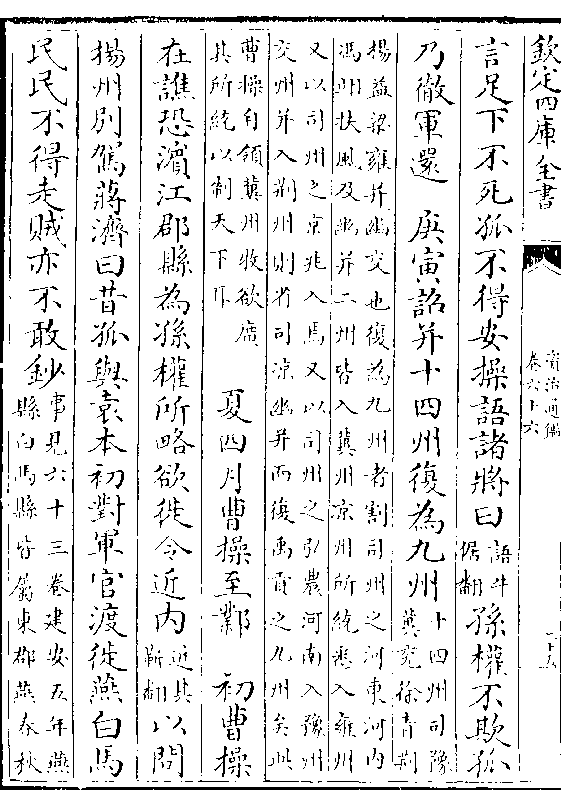 欽定四庫全書
資治通鑑
卷六十六
言足下不死孤不得安操語諸將曰語牛倨翻孫權不欺孤
乃徹軍還　庚寅詔并十四州復為九州十四州司豫冀兖徐青荆
揚益梁雍并幽交也復為九州者割司州之河東河内
馮翊扶風及幽并二州皆入冀州凉州所統悉入雍州
又以司州之京兆入焉又以司州之弘農河南入豫州
交州并入荆州則省司凉幽并而復禹貢之九州矣此
曹操自領冀州牧欲廣其所統以制天下耳　夏四月曹操至鄴　初曹操
在譙恐濱江郡縣為孫權所略欲徙令近内近其靳翻以問
揚州别駕蔣濟曰昔孤與袁本初對軍官渡徙燕白馬
民民不得走賊亦不敢鈔事見六十三卷建安五年燕縣白馬縣皆屬東郡燕春秋